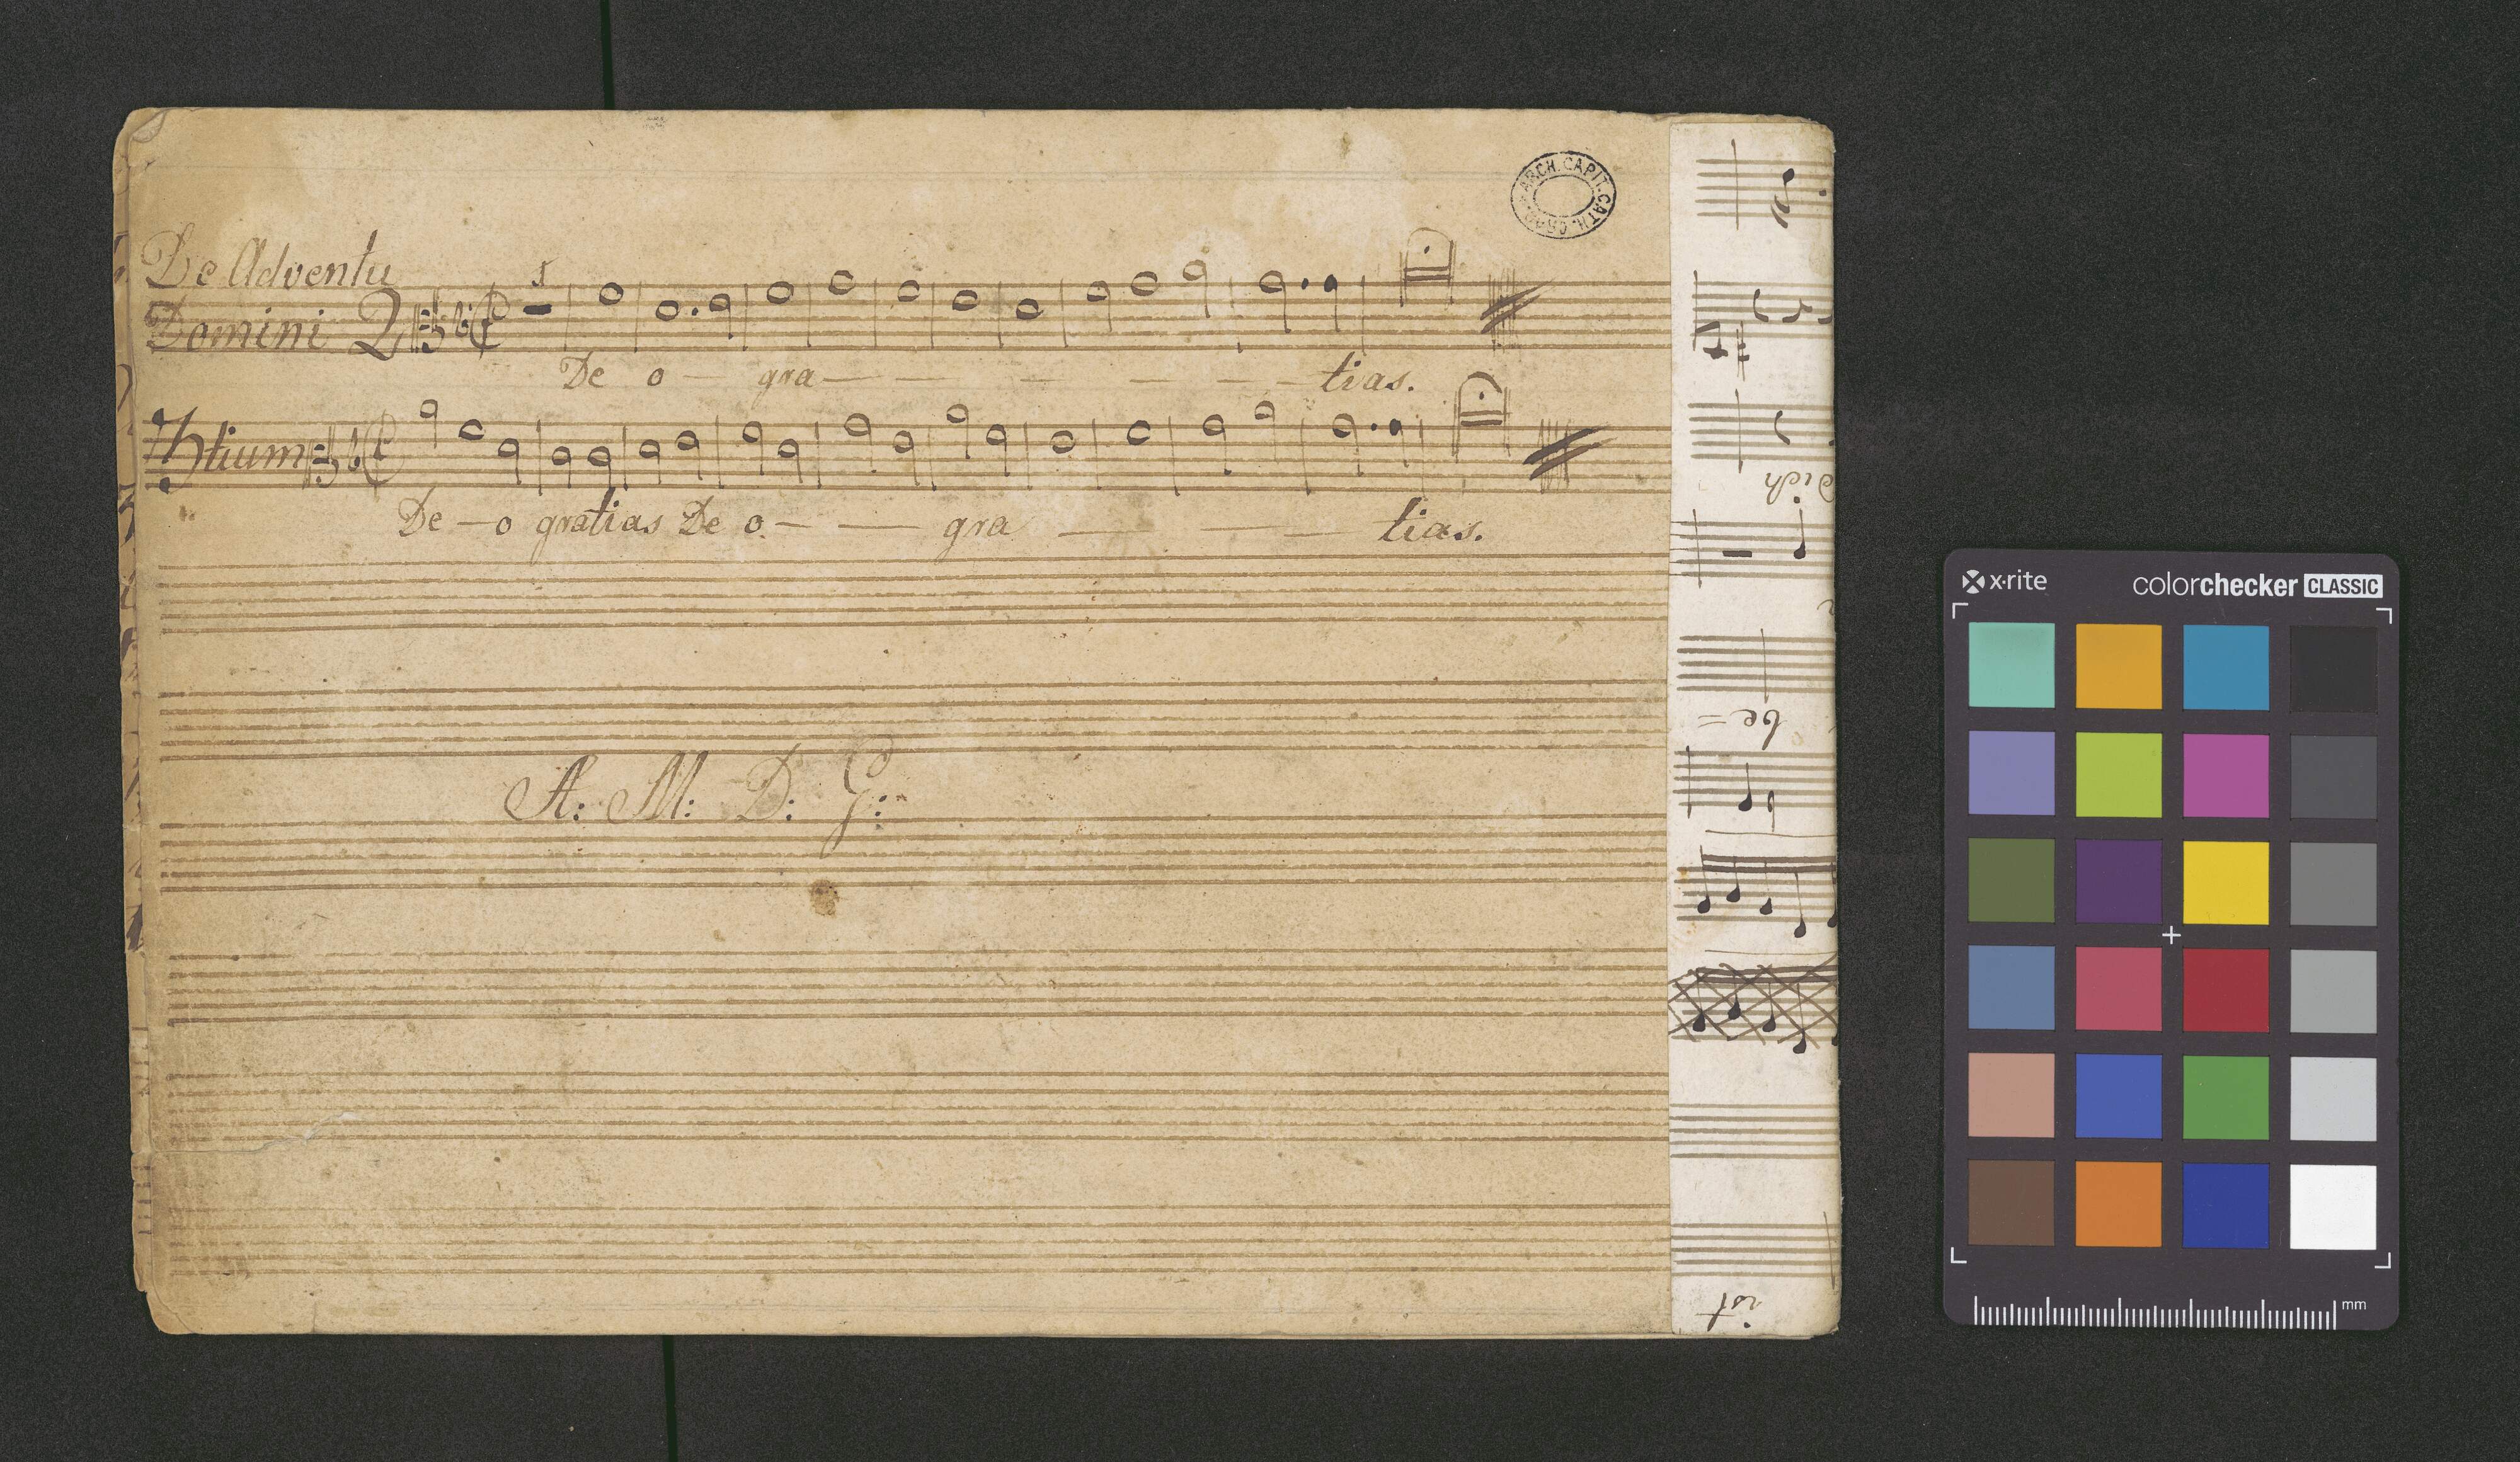 De Adventu
Domini 2
1
De o — gra — — — — — — tias.
7tium
De — o gratias De o. — — gra — — — tias.
A: M: D: G:
ARCH. CAPIT. CATH. CRAC.
dich
be =
ist
x·rite
colorchecker CLASSIC
mm